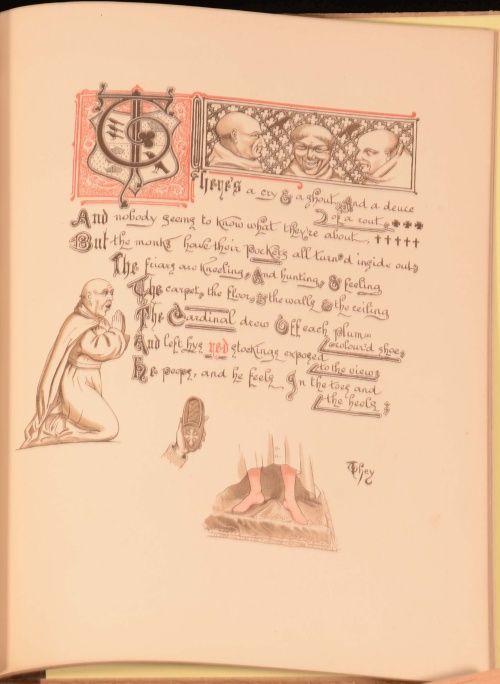 There's a cry & a shout, And a deuce
of a rout,
And nobody seems to know what they're about,
But the monks have their Pockets all turn'd inside out;
The friars are kneeling, And hunting, & feeling
The carpet, the floor, & the walls, & the ceiling
The Cardinal drew Off each plum-
colour'd shoe,
And left hys red stockings exposed
to the view;
He peeps, and he feels In the toes and
the heels;
They